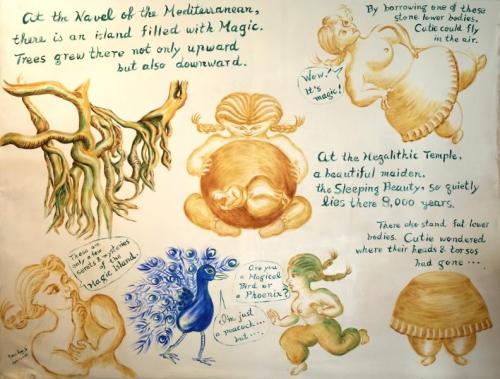 At the Navel of the Mediterranean,
there is an island filled with Magic.
Trees grew there not only upward
but also downward.
By borrowing one of these
stone lower bodies,
Cutie could fly
in the air.
Wow!
It's
magic!
At the Megalithic Temple,
a beautiful maiden,
the Sleeping Beauty, so quietly
lies there 8,000 years.
There also stand fat lower
bodies. Cutie wondered
where their heads & torsos
had gone ...
These are
only a few
secrets & mysteries
of the
Magic Island.
Are you
a Magical
Bird or
a Phoenix?
I'm just
a peacock...
but...